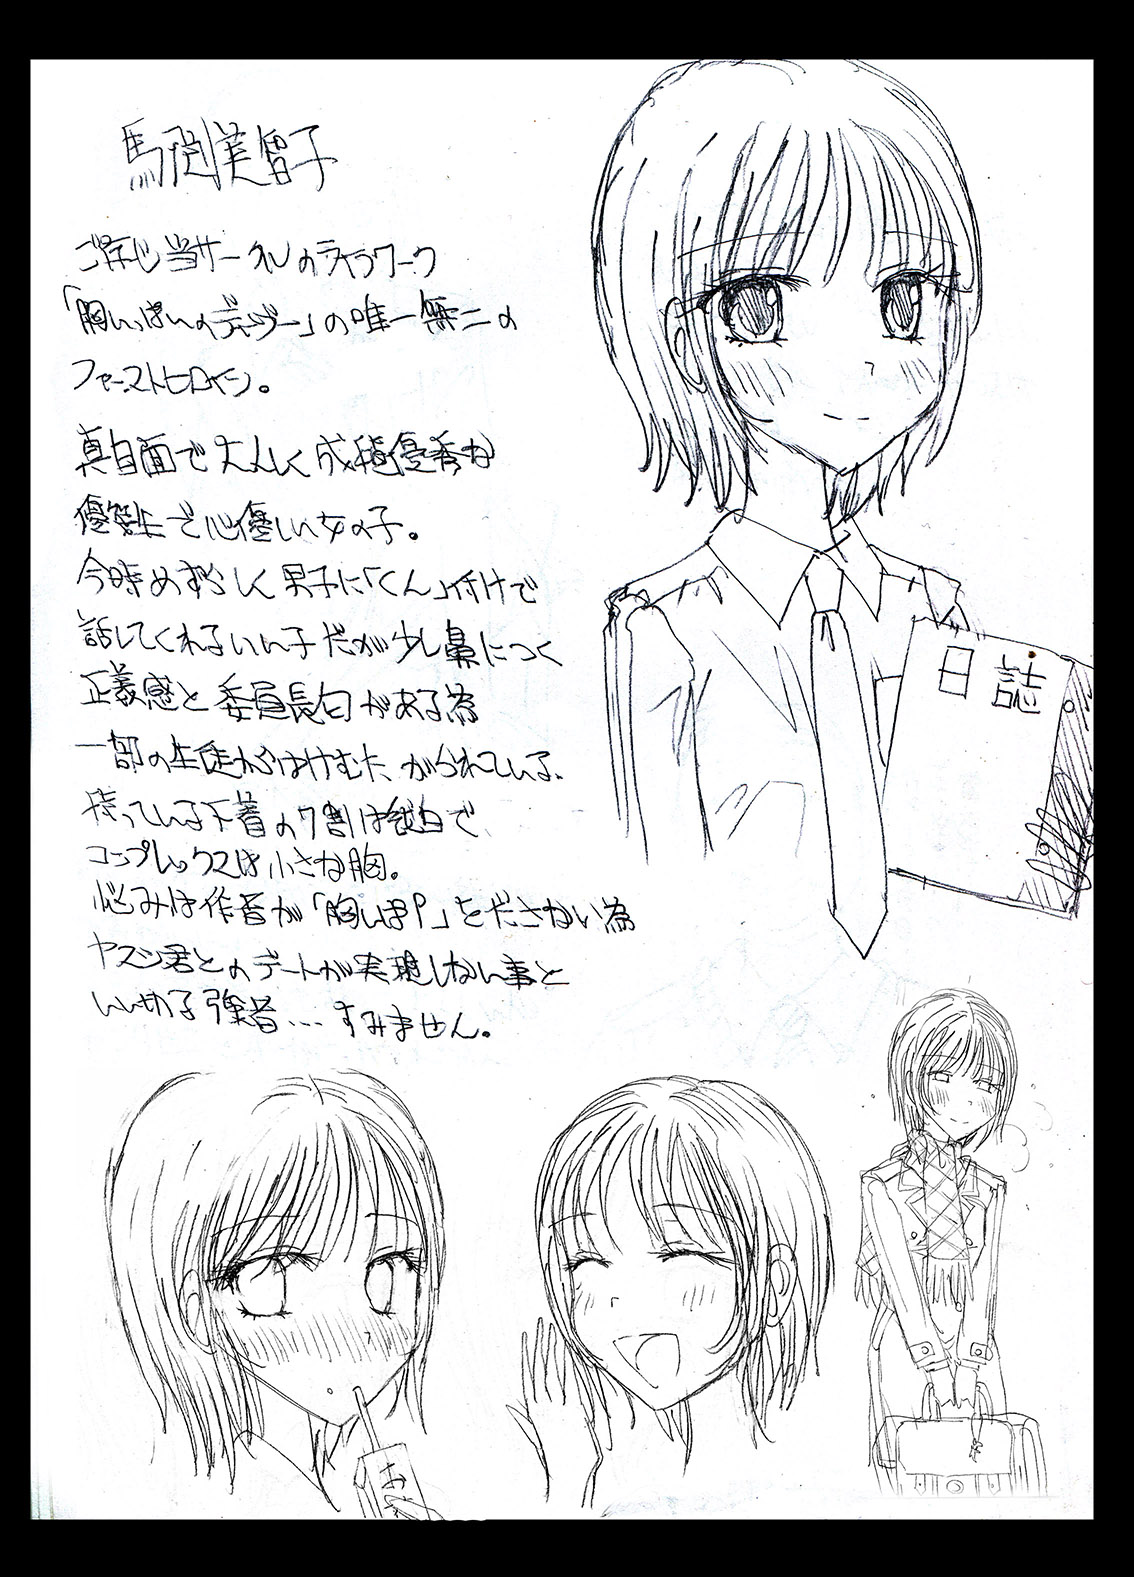 馬渕美智子
ご存じ当サークルのライフワーク
「胸いっぱいのディンゴー」の唯一無二の
ファーストヒロイン。
真白面で大人しく成績優秀な
優等生で心優しい女の子。
今時めずらしく男子に「くん」付けで
話してくれるいい子だが少し鼻につく
正義感と委員長臭がある為
一部の生徒からはけむたがられている。
持っている下着の7割は純白で
コンプレックスは小さな胸。
悩みは作者が「胸いっぱ」をださない為
ヤスシ君とのデートが実現しない事と
いい切る強者…すみません。
日誌
お